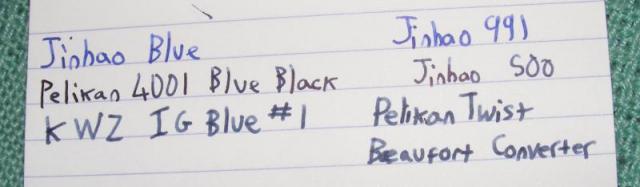 Jinhao Blue
Pelikan 4001 Blue Black
KWZ IG Blue #1
Jinhao 991
Jinhao 500
Pelikan Twist
Beaufort Converter